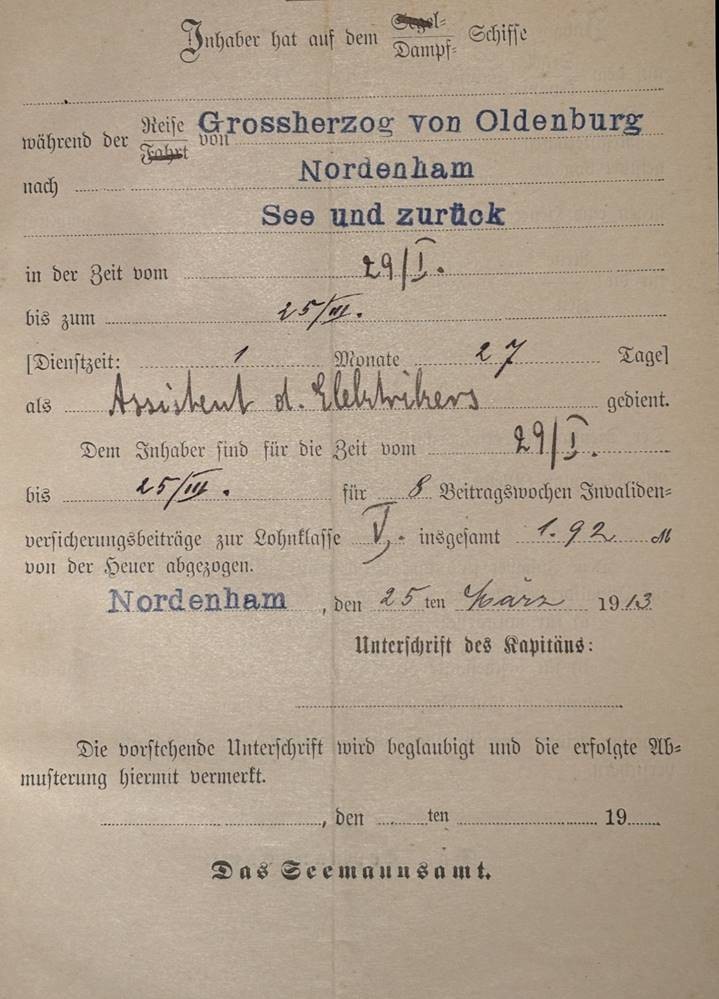 Inhaber hat auf dem Segel- Dampf- Schiffe
während der Reise Fahrt von Grossherzog von Oldenburg
nach Nordenham
See und zurück
in der Zeit vom 29/I.
bis zum 25/III.
[Dienstzeit: 1 Monate 27 Tage]
als Assistent d. Elektrikers gedient.
Dem Inhaber sind für die Zeit vom 29/I.
bis 25/III. für 8 Beitragswochen Invaliden-
versicherungsbeiträge zur Lohnklasse V, insgesamt 1.92 M
von der Heuer abgezogen.
Nordenham, den 25ten März 1913
Unterschrift des Kapitäns:
Die vorstehende Unterschrift wird beglaubigt und die erfolgte Ab-
musterung hiermit vermerkt.
, den ten 19
Das Seemannsamt.